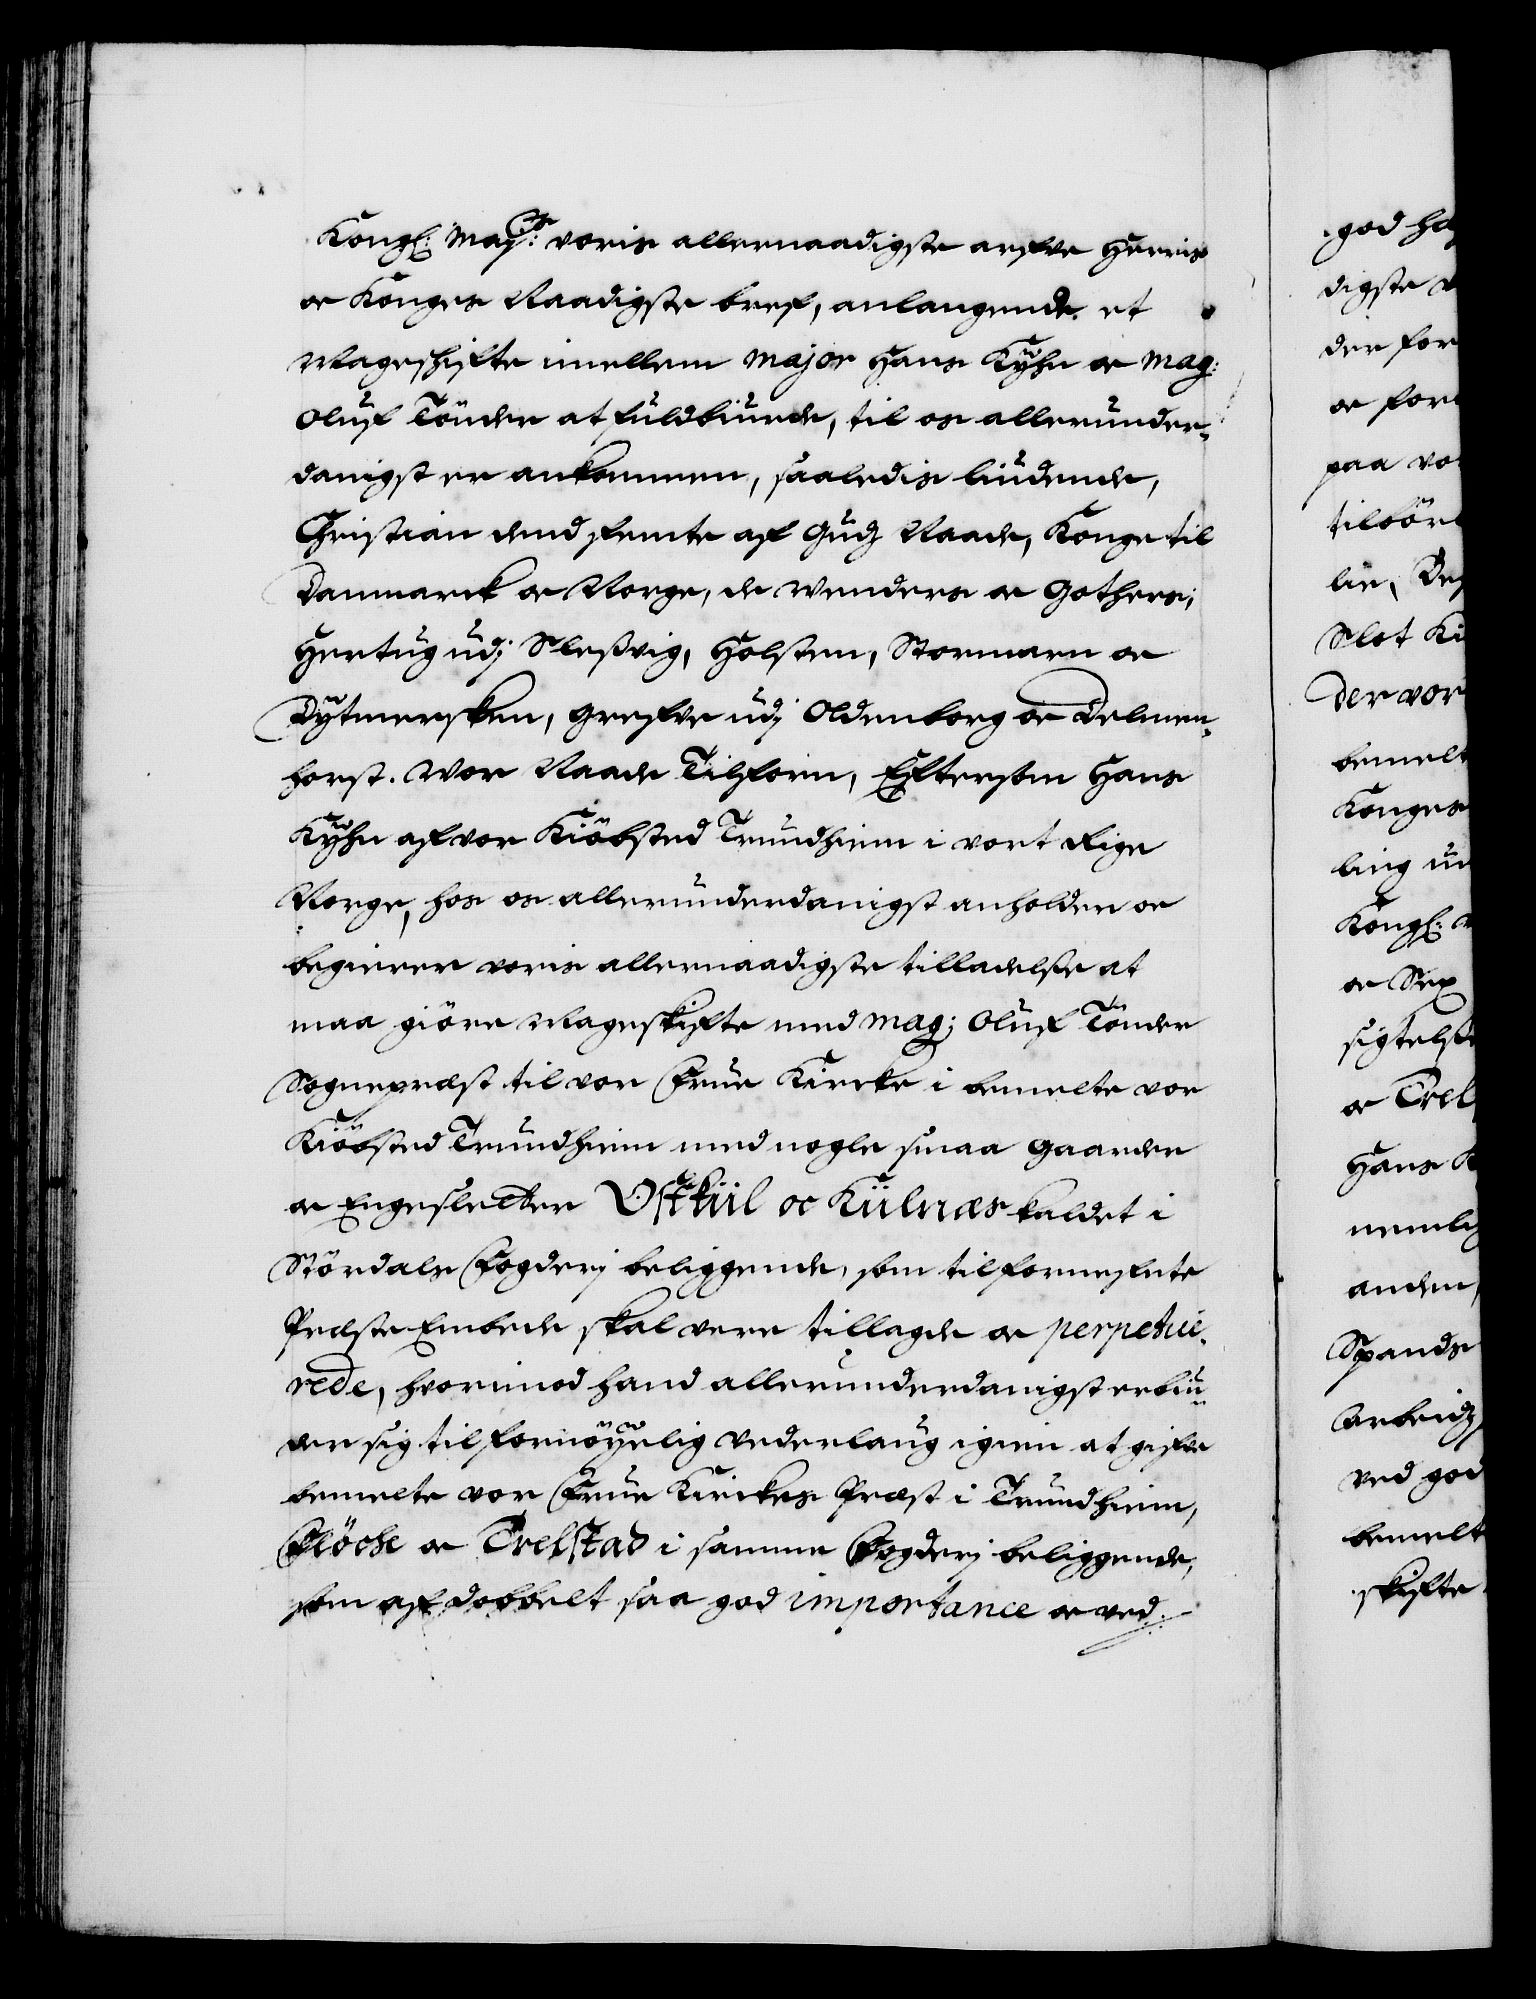 Kongl: May:ts voris allernaadigste arfve Herris
oc Konges Naadigste bref, anlangende et
Mageskifte imellem Major Hans Kÿhn oc Mag:
Oluf Tönder at fuldbiurde, til os allerunder-
danigst er ankommen, saaledis liudende,
Christian dend femte af Gudz Naade, Konge til
Danmarck oc Norge, de Wenders oc Gothers,
Hertug udj Sleßvig, Holsten, Stormarn oc
Dÿtmersken, Grefve udj Oldenborg oc Delmen-
horst. Wor Naade Tilforn, Eftersom Hans
Kÿhn af vor Kiöbsted Trundhiem i vort Rige
Norge, hos os allerunderdanigst anholder oc
begierer voris allernaadigste tilladelse at
maa giöre Mageskifte med Mag; Oluf Tönder
Sognepræst til vor Frue Kircke i bemelte vor
Kiöbsted Trundhiem med nogle smaa Gaarder
oc Engesletter Østkiil oc Kiilnæs kaldet i
Stördals Fogderj beliggende, som til fornefnte
Præste Embede skal vere tillagde oc perpetue-
rede, hvorimod hand allerunderdanigst erbiu-
der sig til fornöÿelig Vederlaug igien at gifve
bemelte vor Frue Kirckes Præst i Trundhiem,
Flöche oc Trelstad i samme Fogderj beliggende,
som af dobbelt saa god importance oc ved
god
digste
der for
oc for
paa vo
tilbör
lie,
Slot Ki
Der vor
bemelt
Konges
ling
Kongl:
oc Sex
sigtelse
oc Trel
Hans K
nemlig
anden,
Spands
Arbeidz
ved god
bemelt
skifte